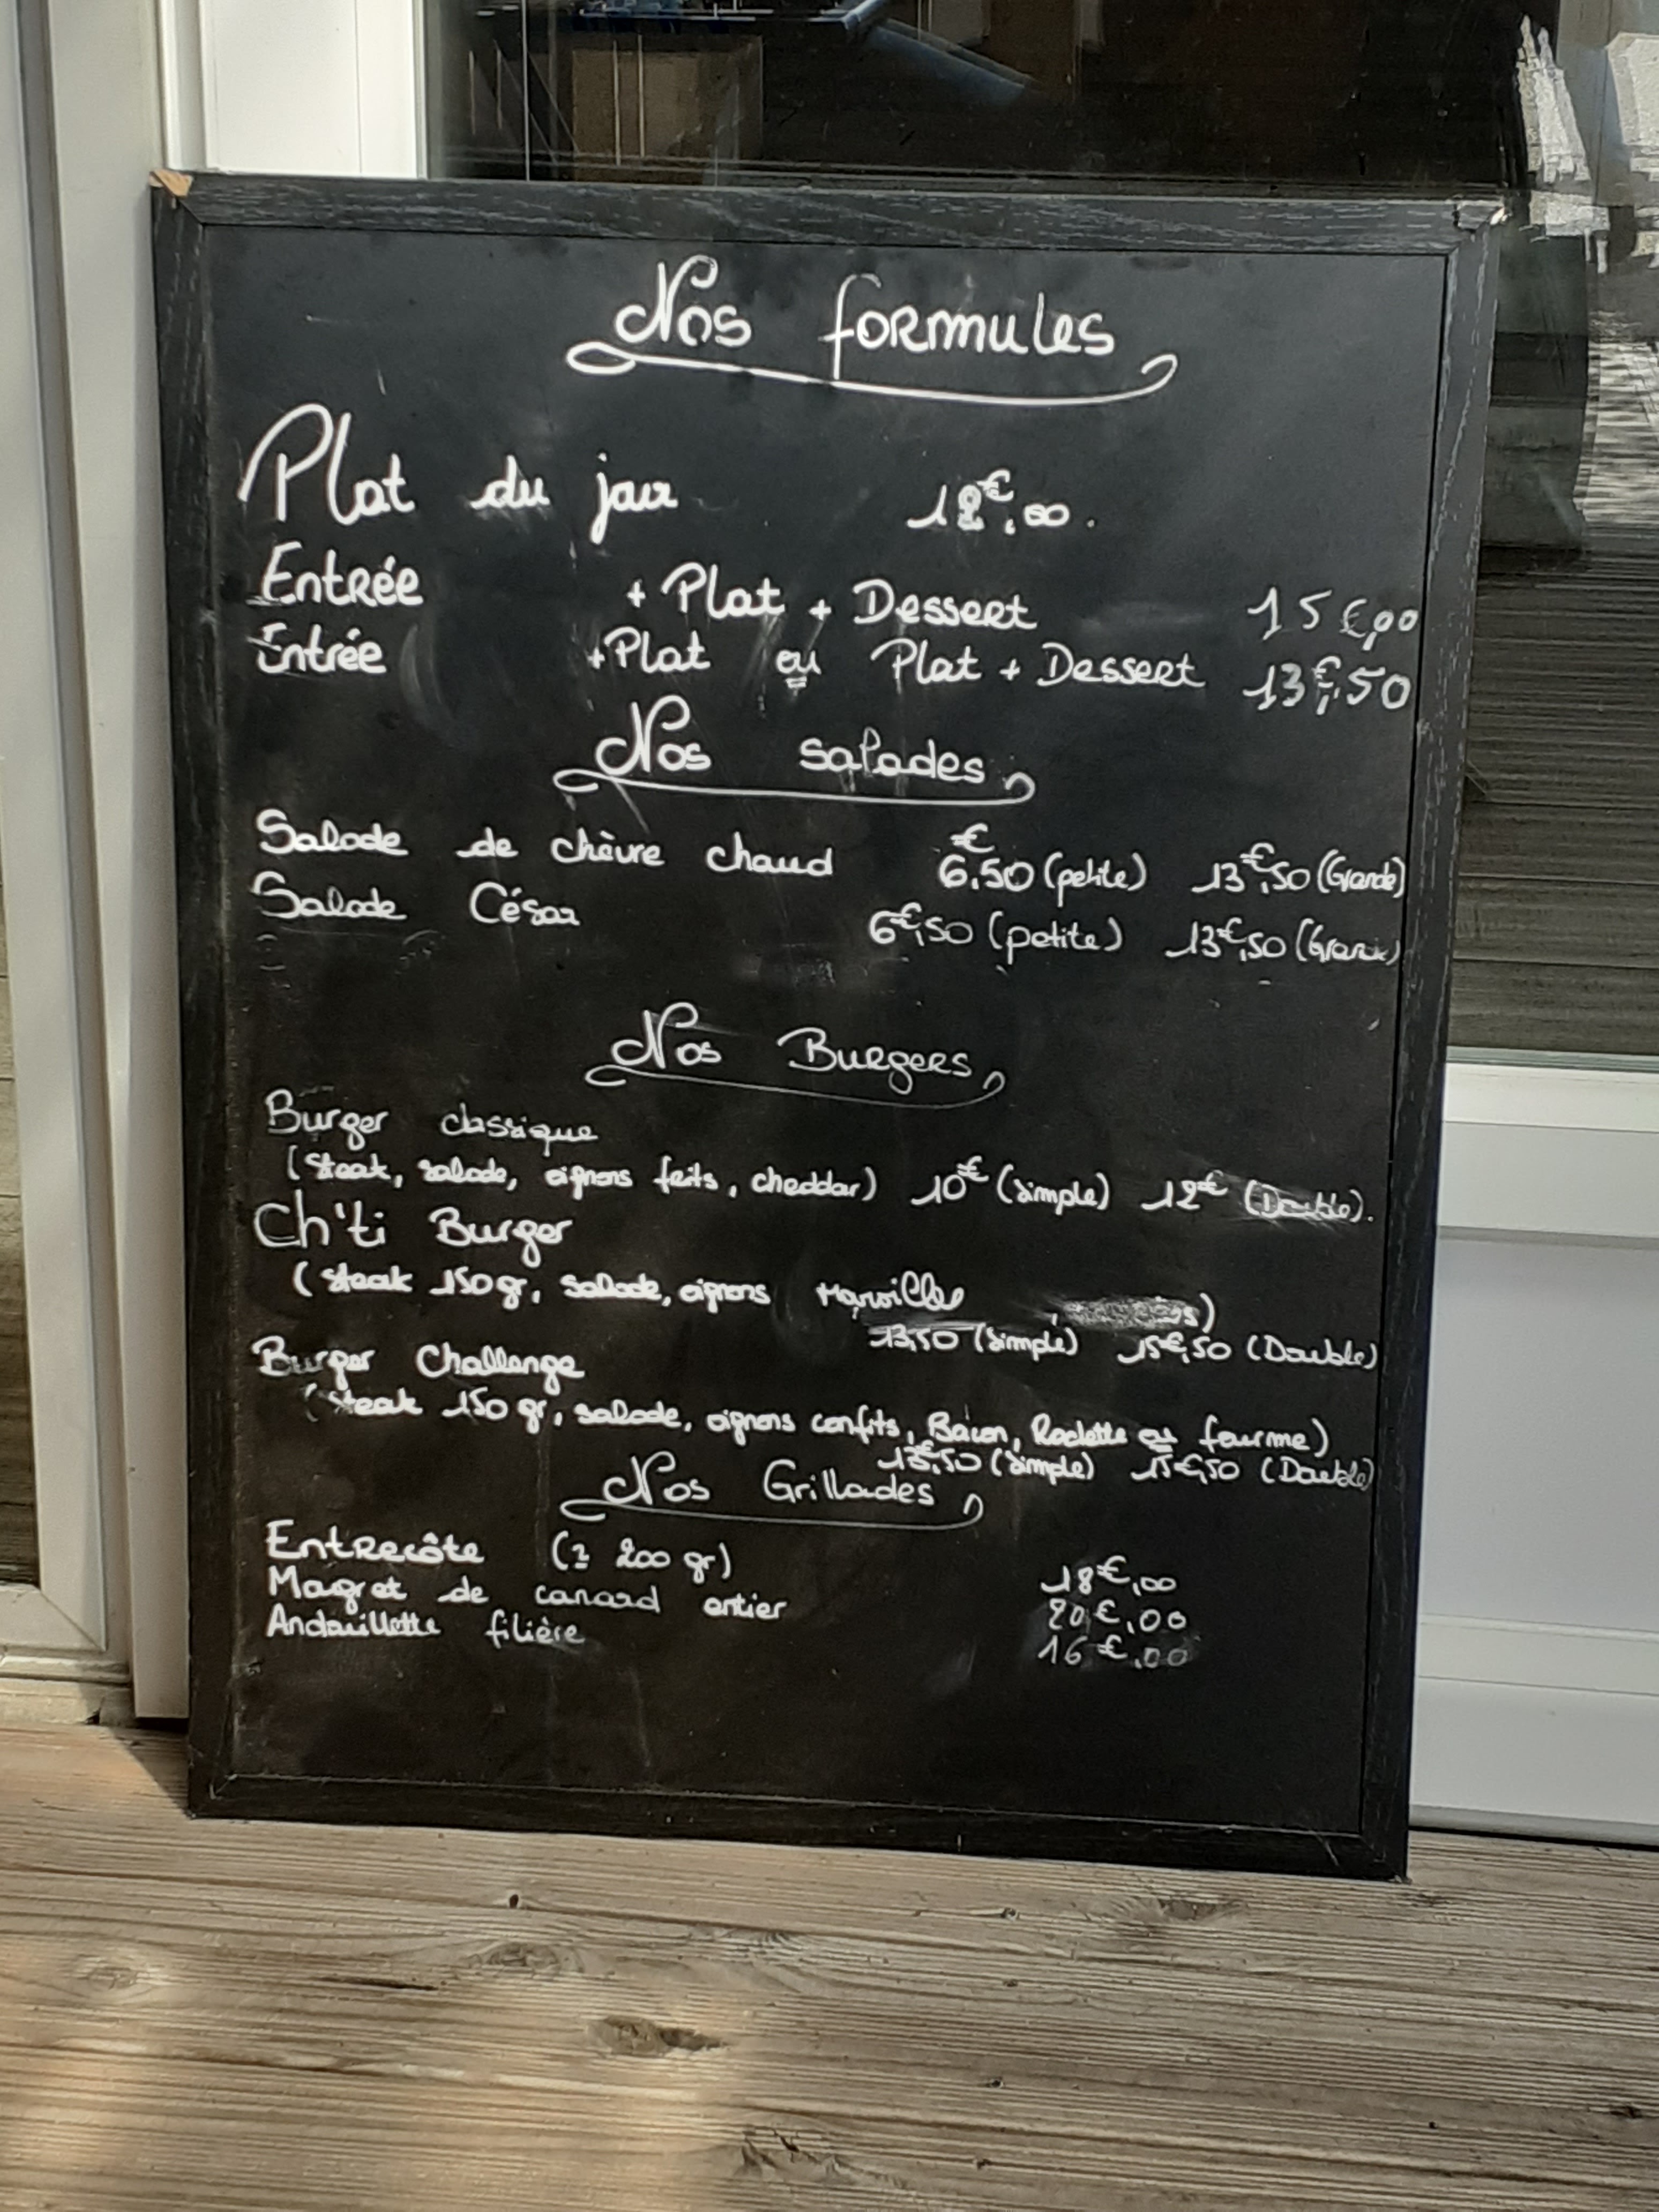 Nos formules
Plat du jour 12€,00.
Entrée + Plat + Dessert 15€,00
Entrée +Plat ou Plat + Dessert 13€,50
Nos salades
Salade de chèvre chaud 6€,50 (petite) 13€,50 (Grande)
Salade César 6€,50 (petite) 13€,50 (Grande)
Nos Burgers
Burger classique
(Steak, salade, oignons frits, cheddar) 10€ (simple) 12€ (Double).
Ch'ti Burger
(steak 150gr, salade, oignons Maroilles )
13,50 (simple) 15€,50 (Double)
Burger Challenge
(steak 150 gr, salade, oignons confits, Bacon, Raclette ou fourme)
13€,50 (simple) 15€,50 (Double)
Nos Grillades
Entrecôte (± 200 gr) 18€,00
Magret de canard entier 20€,00
Andouillette filière 16€,00